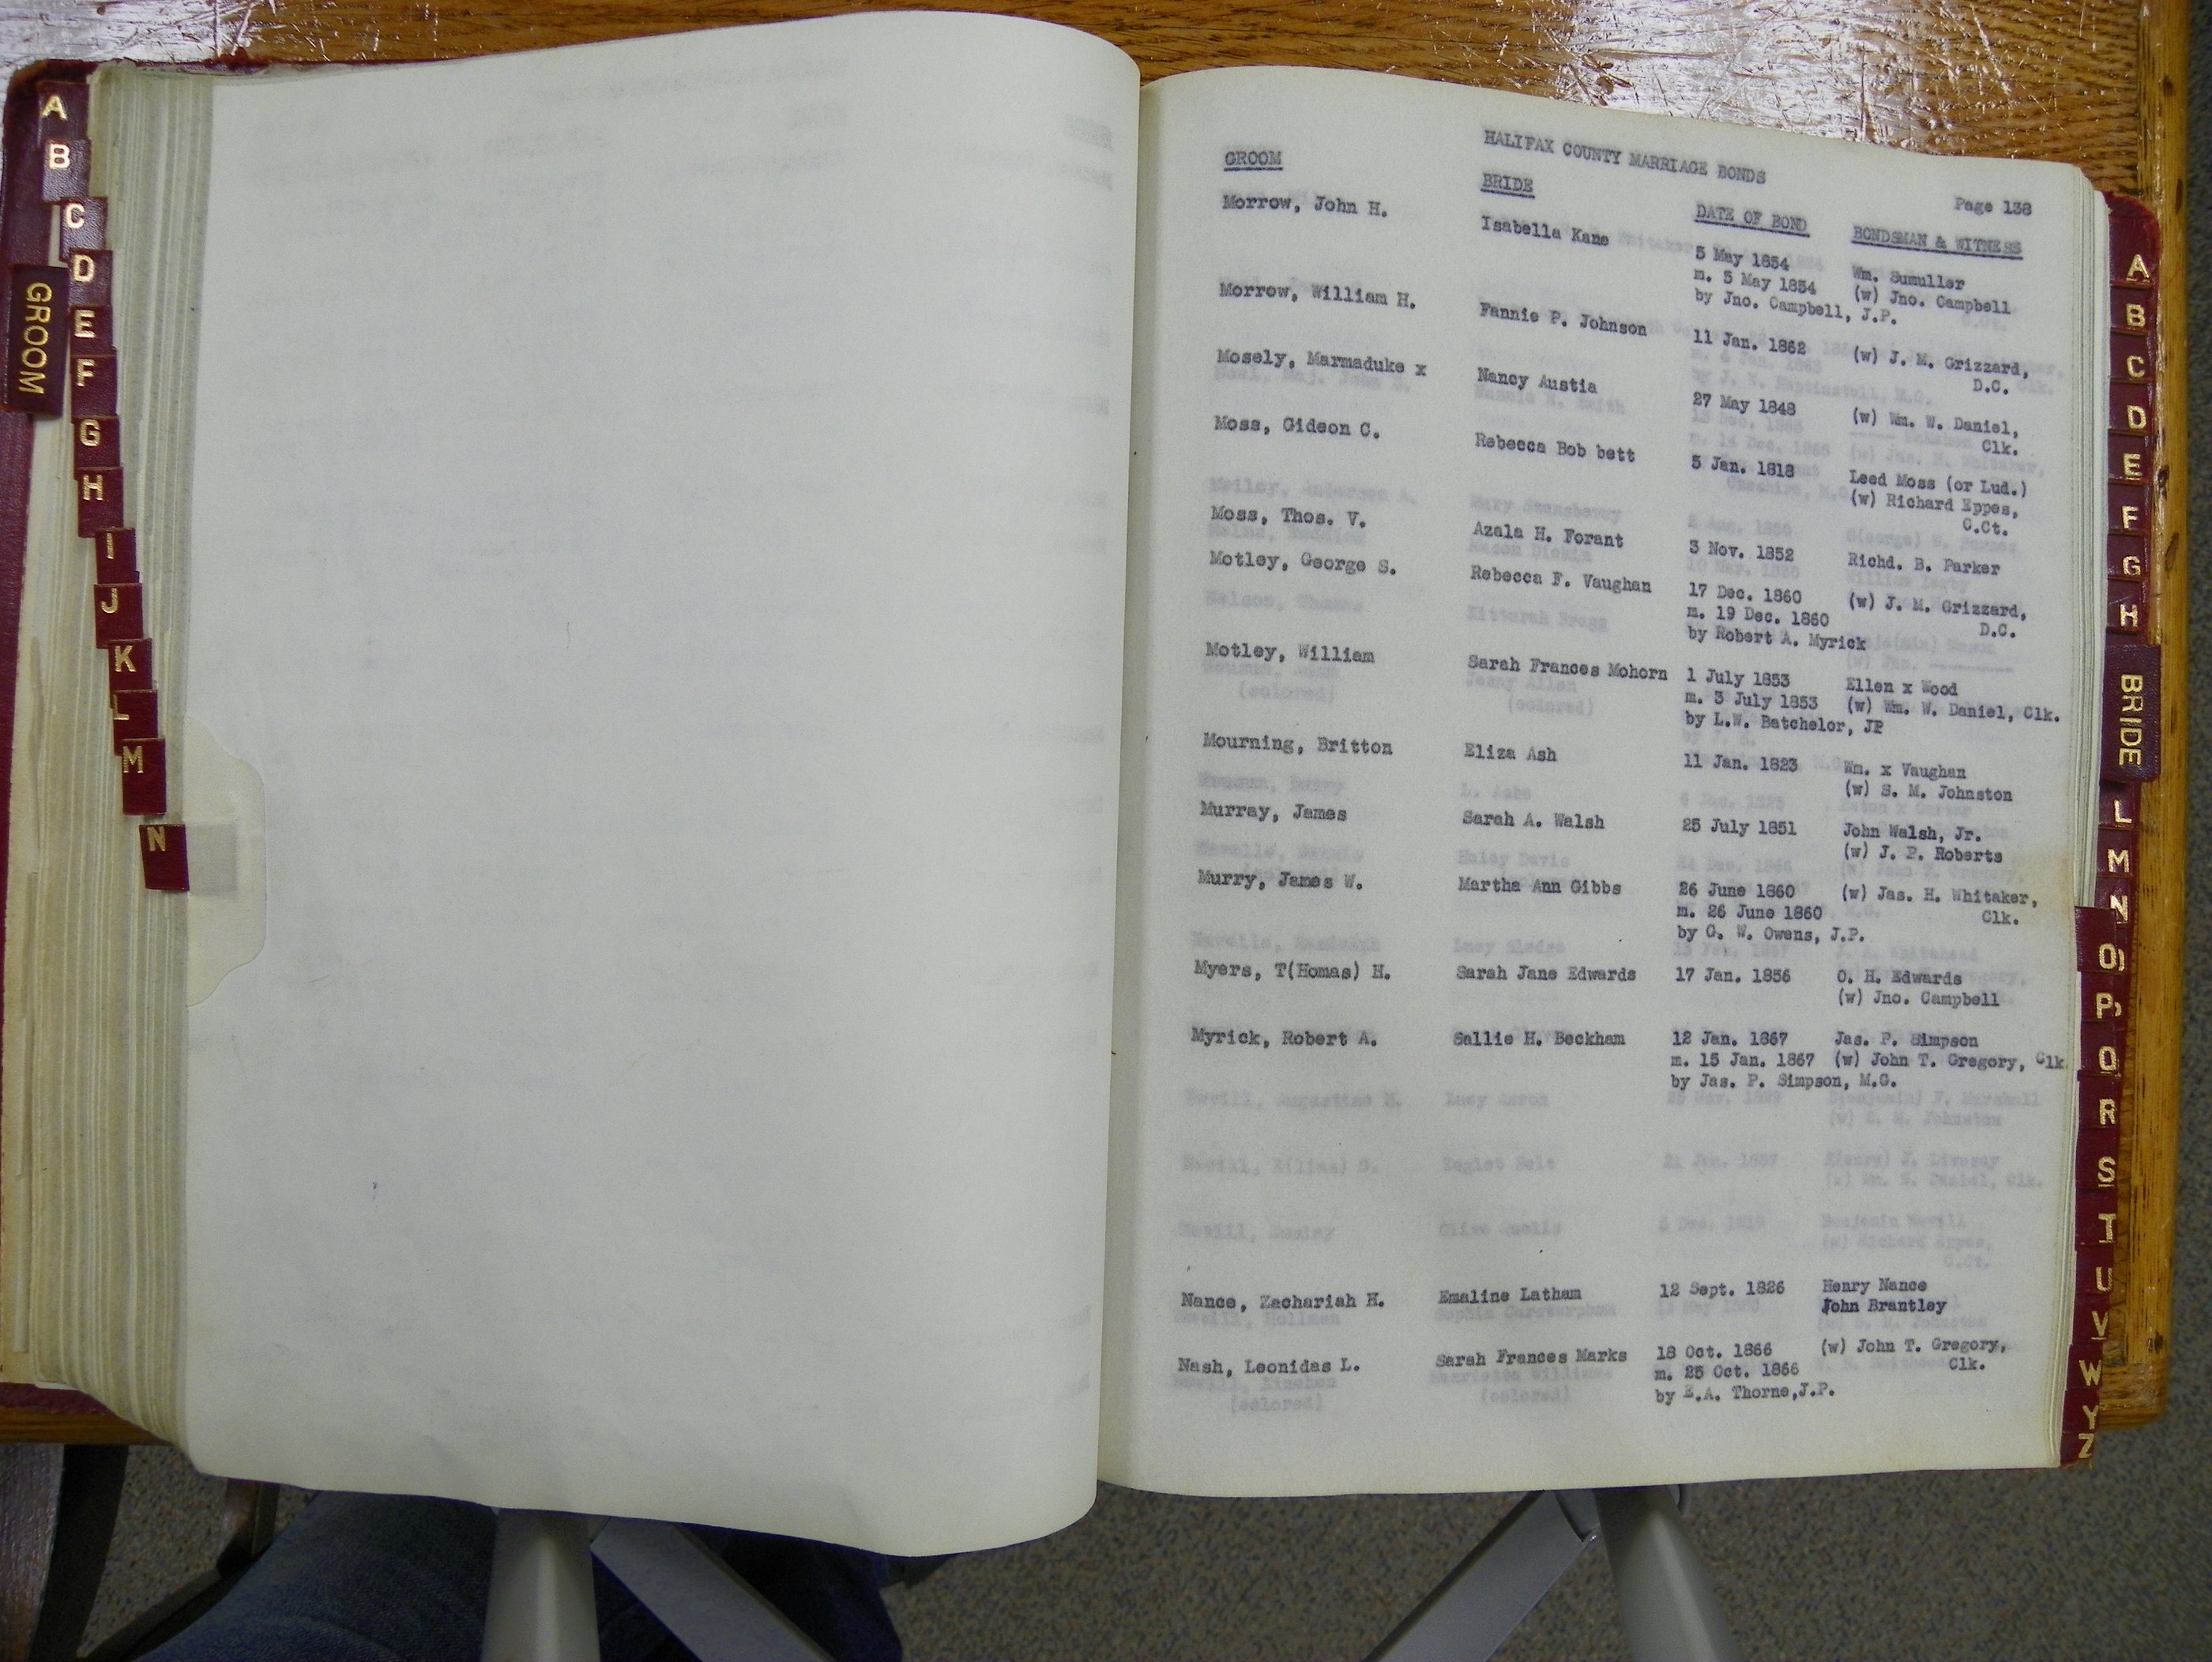 A
B
C
D
E
F
G
H
I
J
K
L
M
N
GROOM
HALIFAX COUNTY MARRIAGE BONDS
Page 138
GROOM BRIDE DATE OF BOND BONDSMAN & WITNESS
Morrow, John H. Isabella Kane 5 May 1854 Wm. Sumuller
m. 5 May 1854 (w) Jno. Campbell
by Jno. Campbell, J.P.
Morrow, William H. Fannie P. Johnson 11 Jan. 1862 (w) J. M. Grizzard,
D.C.
Mosely, Marmaduke x Nancy Austia 27 May 1848 (w) Wm. W. Daniel,
Clk.
Moss, Gideon C. Rebecca Bob bett 5 Jan. 1818 Leed Moss (or Lud.)
(w) Richard Eppes,
C.Ct.
Moss, Thos. V. Azala H. Forant 3 Nov. 1852 Richd. B. Parker
Motley, George S. Rebecca F. Vaughan 17 Dec. 1860 (w) J. M. Grizzard,
m. 19 Dec. 1860 D.C.
by Robert A. Myrick
Motley, William Sarah Frances Mohorn 1 July 1853 Ellen x Wood
m. 3 July 1853 (w) Wm. W. Daniel, Clk.
by L.W. Batchelor, JP
Mourning, Britton Eliza Ash 11 Jan. 1823 Wm. x Vaughan
(w) S. M. Johnston
Murray, James Sarah A. Walsh 25 July 1851 John Walsh, Jr.
(w) J. P. Roberts
Murry, James W. Martha Ann Gibbs 26 June 1860 (w) Jas. H. Whitaker,
m. 26 June 1860 Clk.
by G. W. Owens, J.P.
Myers, T(Homas) H. Sarah Jane Edwards 17 Jan. 1856 O. H. Edwards
(w) Jno. Campbell
Myrick, Robert A. Sallie H. Beckham 12 Jan. 1867 Jas. P. Simpson
m. 15 Jan. 1867 (w) John T. Gregory, Clk
by Jas. P. Simpson, M.G.
Nance, Zachariah H. Emaline Latham 12 Sept. 1826 Henry Nance
John Brantley
Nash, Leonidas L. Sarah Frances Marks 18 Oct. 1866 (w) John T. Gregory,
m. 25 Oct. 1866 Clk.
by E.A. Thorne,J.P.
A
B
C
D
E
F
G
H
BRIDE
L
M
N
O
P
Q
R
S
T
U
V
W
Y
Z